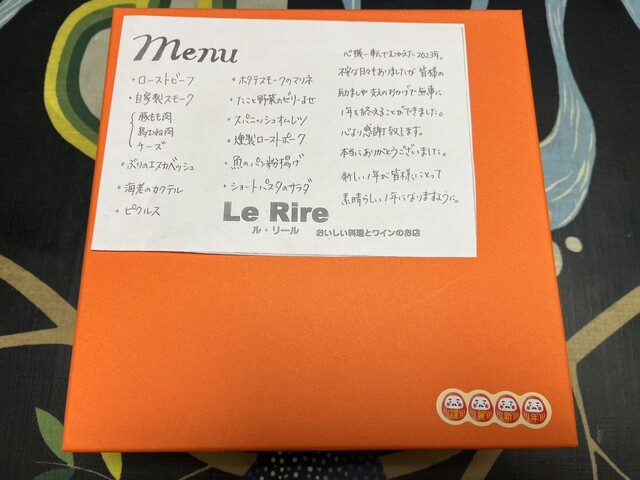 Menu
・ローストビーフ
・自家製スモーク
豚もも肉
鳥むね肉
チーズ
・ぶりのエスカベッシュ
・海老のカクテル
・ピクルス
・ホタテスモークのマリネ
・たこと野菜のゼリーよせ
・スパニッシュオムレツ
・燻製ローストポーク
・魚のパン粉揚げ
・ショートパスタのサラダ
心機一転でむかえた2023年。
不安な日々もありましたが皆様の
励ましや支えのおかげで無事に
1年を終えることができました。
心より感謝致します。
本当にありがとうございました。
新しい1年が皆様にとって
素晴らしい1年になりますように。
Le Rire
ル・リール おいしい料理とワインのお店
謹賀新年